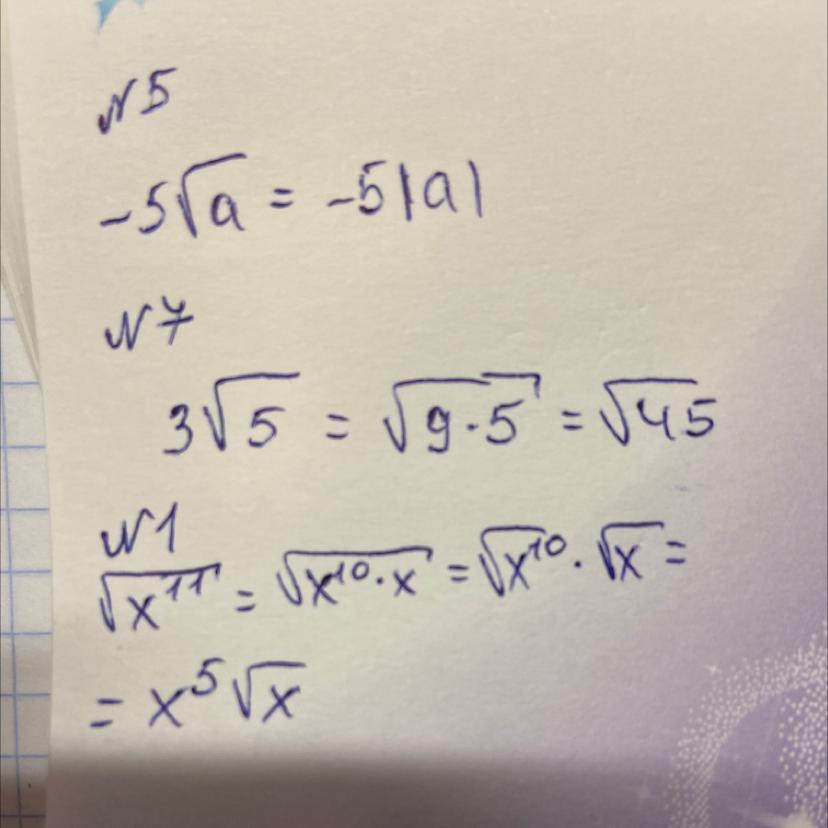 №5
-5√a = -5|a|
№7
3√5 = √9·5 = √45
№1
√x¹¹ = √x¹⁰·x = √x¹⁰ · √x =
= x⁵√x